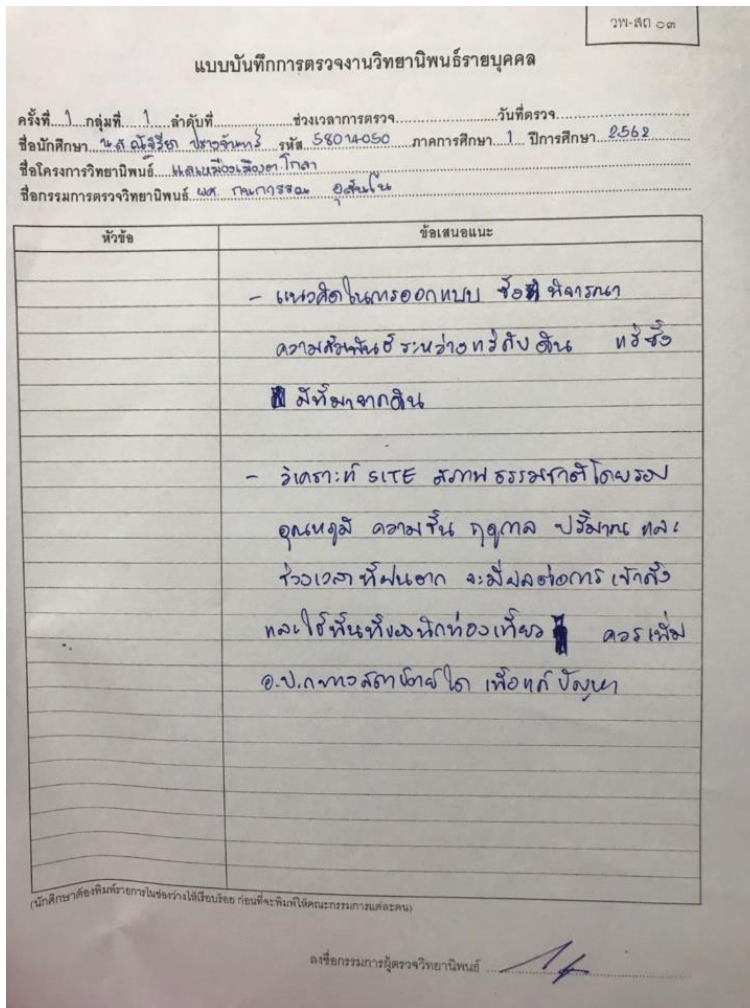 วพ-สถ ๐๓
แบบบันทึกการตรวจงานวิทยานิพนธ์รายบุคคล
ครั้งที่ 1 กลุ่มที่ 1 ลำดับที่ ช่วงเวลาการตรวจ วันที่ตรวจ
ชื่อนักศึกษา น.ส. รหัส 58014050 ภาคการศึกษา 1 ปีการศึกษา 2562
ชื่อโครงการวิทยานิพนธ์
ชื่อกรรมการตรวจวิทยานิพนธ์ ผศ.
หัวข้อ ข้อเสนอแนะ
- แนวคิดในการออกแบบ พิจารณา
ความสัมพันธ์ระหว่างแร่กับดิน แร่ซึ่ง
มีที่มาจากดิน
- วิเคราะห์ SITE สภาพธรรมชาติโดยรอบ
อุณหภูมิ ความชื้น ฤดูกาล ปริมาณ และ
ช่วงเวลาที่ฝนตก จะมีผลต่อการเข้าถึง
และใช้พื้นที่ของนักท่องเที่ยว ควรเพิ่ม
เพื่อแก้ปัญหา
(นักศึกษาต้องพิมพ์รายการในช่องว่างให้เรียบร้อย ก่อนที่จะพิมพ์ให้คณะกรรมการแต่ละคน)
ลงชื่อกรรมการผู้ตรวจวิทยานิพนธ์